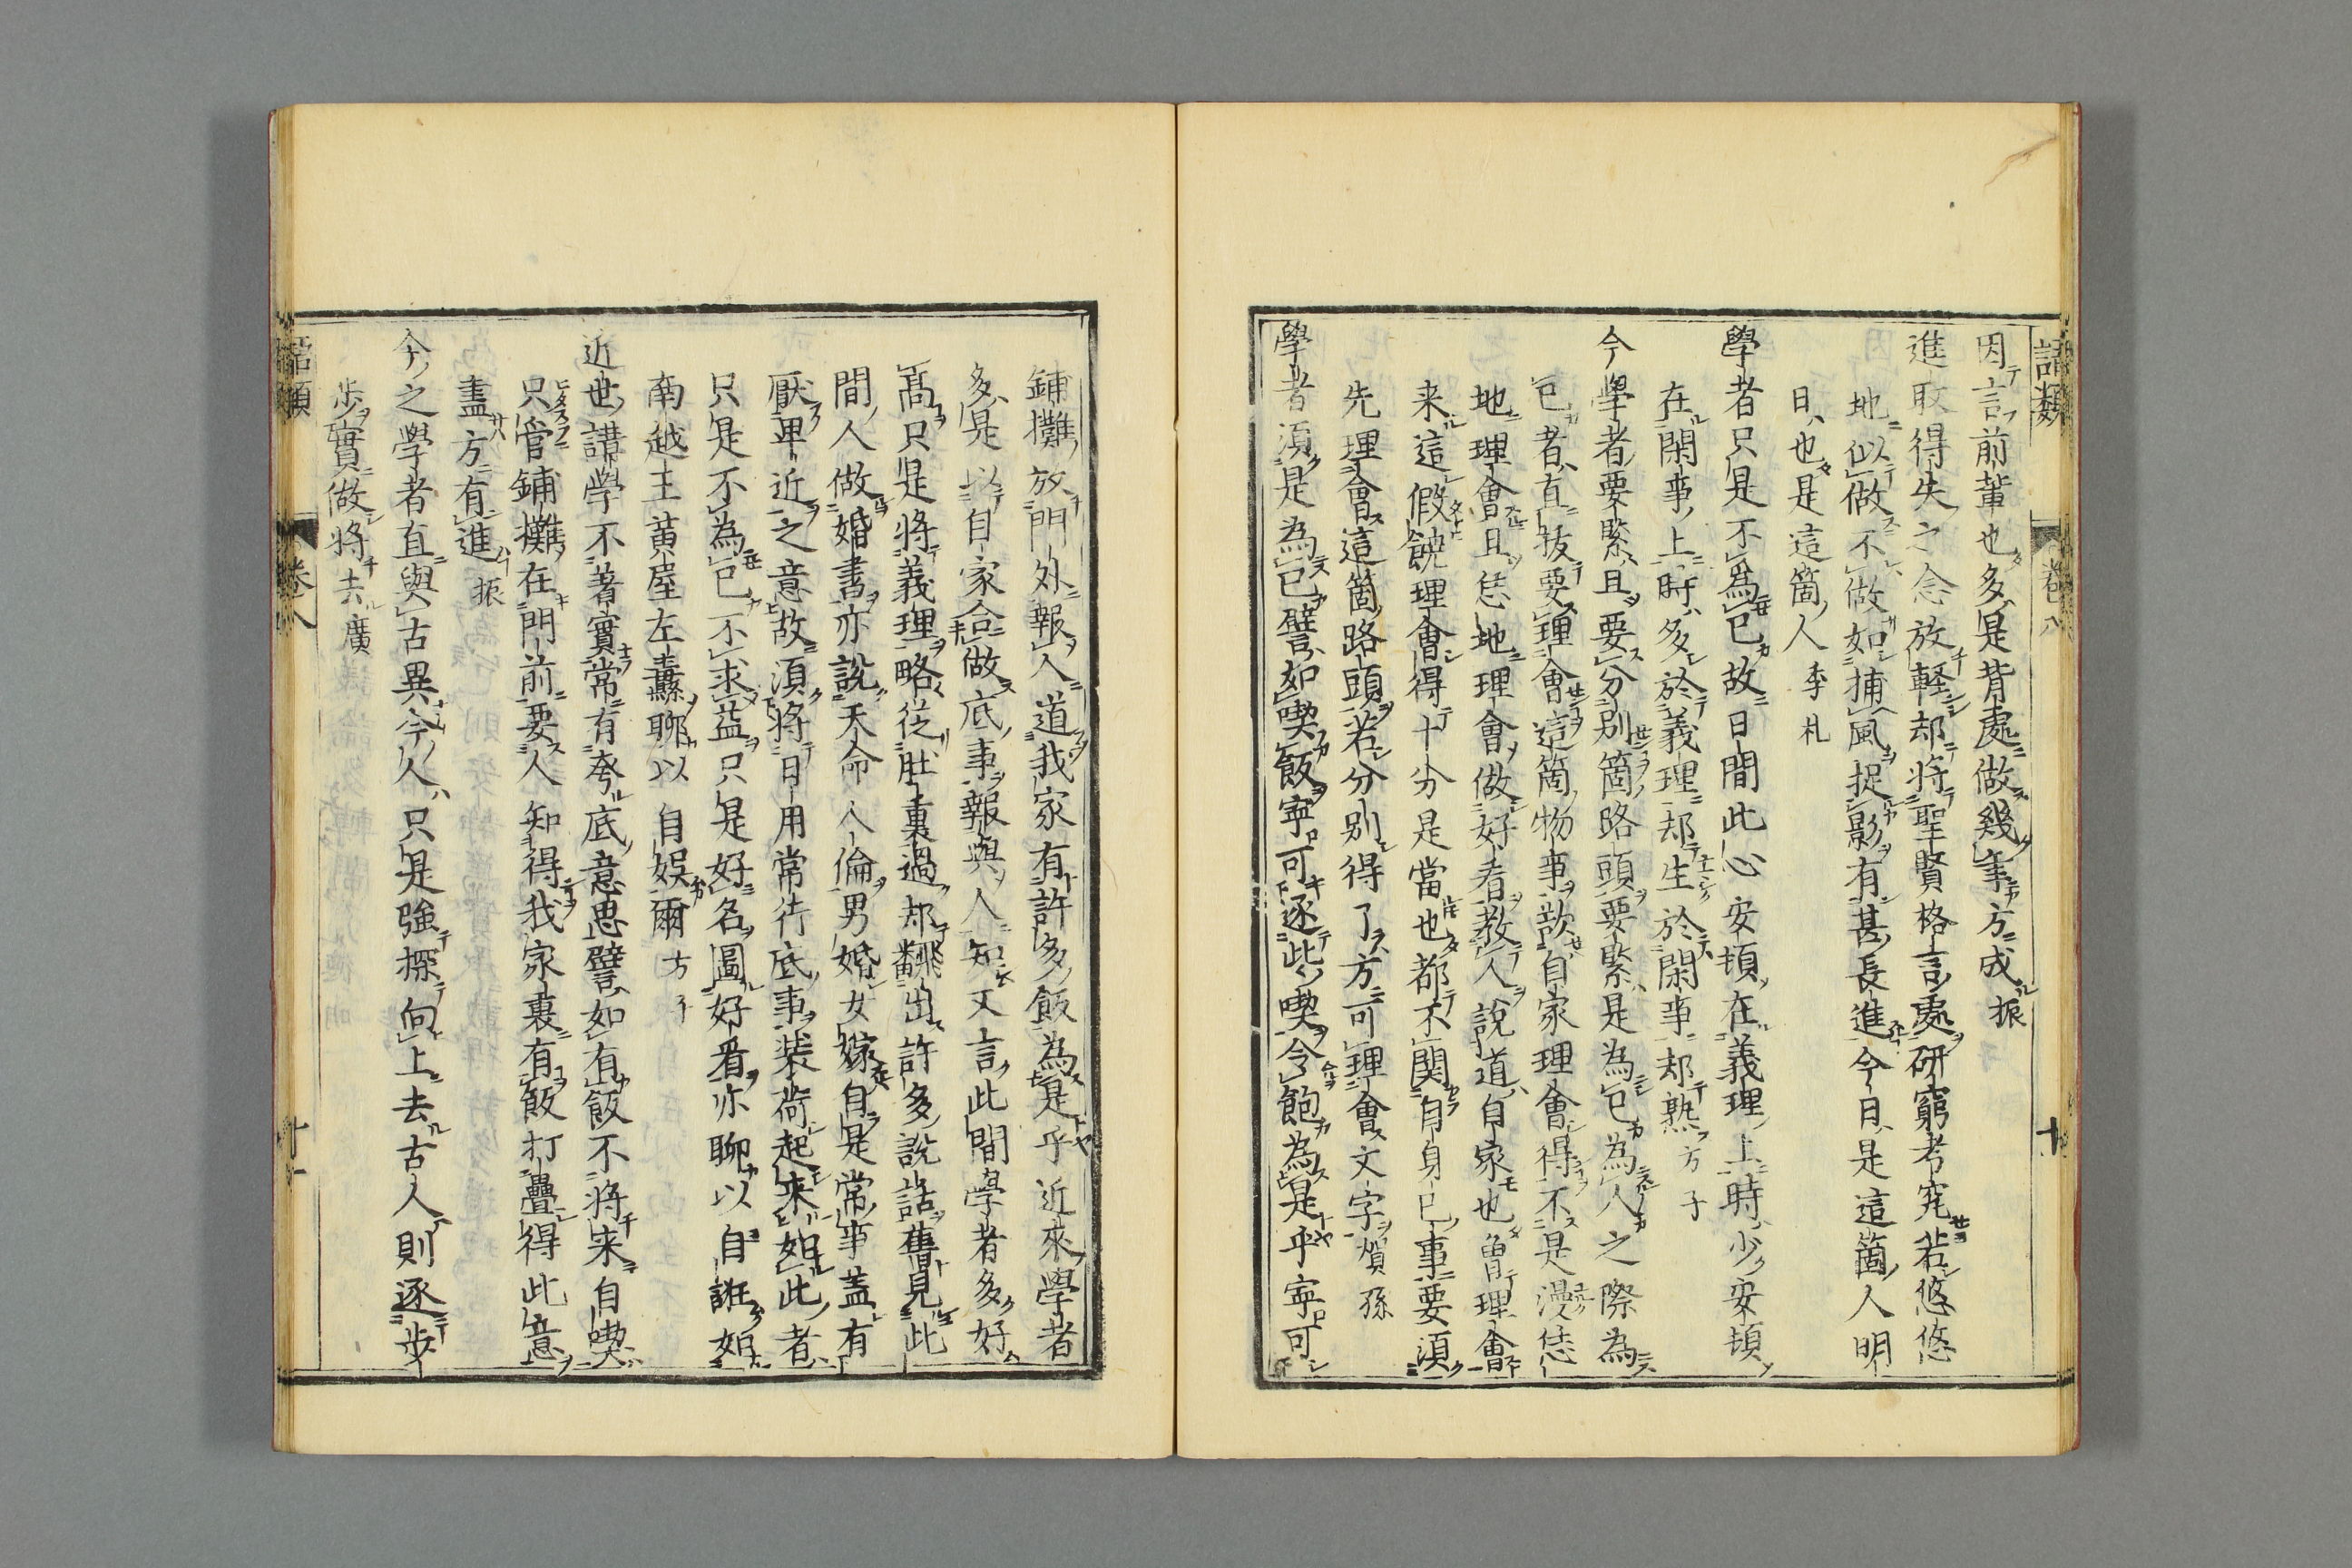 語類
卷八
十
因言前輩也多是背處做幾年方成振
進取得失之念放軽却将聖賢格言處研窮考究若悠悠
地似做不做如捕風捉影有甚長進今日是這箇人明
日也是這箇人季札
學者只是不為已故日間此心安頓在義理上時少安頓
在閑事上時多於義理却生於閑事却熟方子
今學者要緊且要分別箇路頭要緊是為已為人之際為
已者直拔要理會這箇物事欲自家理會得不是漫恁
地理會且恁地理會做好看教人說道自家也曾理會
来這假饒理會得十分是當也都不関自身已事要須
先理會這箇路頭若分別得了方可理會文字賀孫
學者須是為已譬如喫飯寧可逐此喫令飽為是乎寧可
鋪攤放門外報人道我家有許多飯為是乎近來學者
多是以自家合做底事報與人知又言此間學者多好
髙只是将義理略從肚裏過却翻出許多說話舊見此
間人做婚書亦說天命人倫男婚女嫁自是常事盖有
厭卑近之意故須将日用常行底事装荷起来如此者
只是不為已不求益只是好名圖好看亦聊以自誑如
南越王黃屋左纛聊以自娯爾方子
近世講學不著實常有夸底意思譬如有飯不将来自喫
只管鋪攤在門前要人知得我家裏有飯打疊得此意
盡方有進振
今之學者直與古異今人只是強探向上去古人則逐步
步實做将去廣
語類
卷八
十一